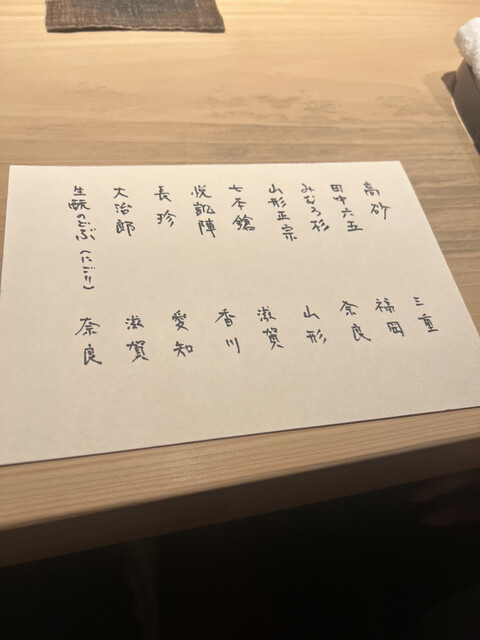 高砂 三重
田中六五 福岡
みむろ杉 奈良
山形正宗 山形
七本鎗 滋賀
悦凱陣 香川
長珍 愛知
大治郎 滋賀
生酛のどぶ（にごり） 奈良